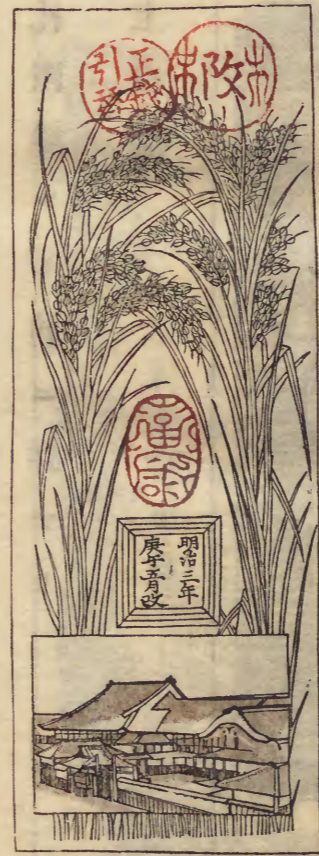 改
正錢
引替
明治三年
庚午五月改